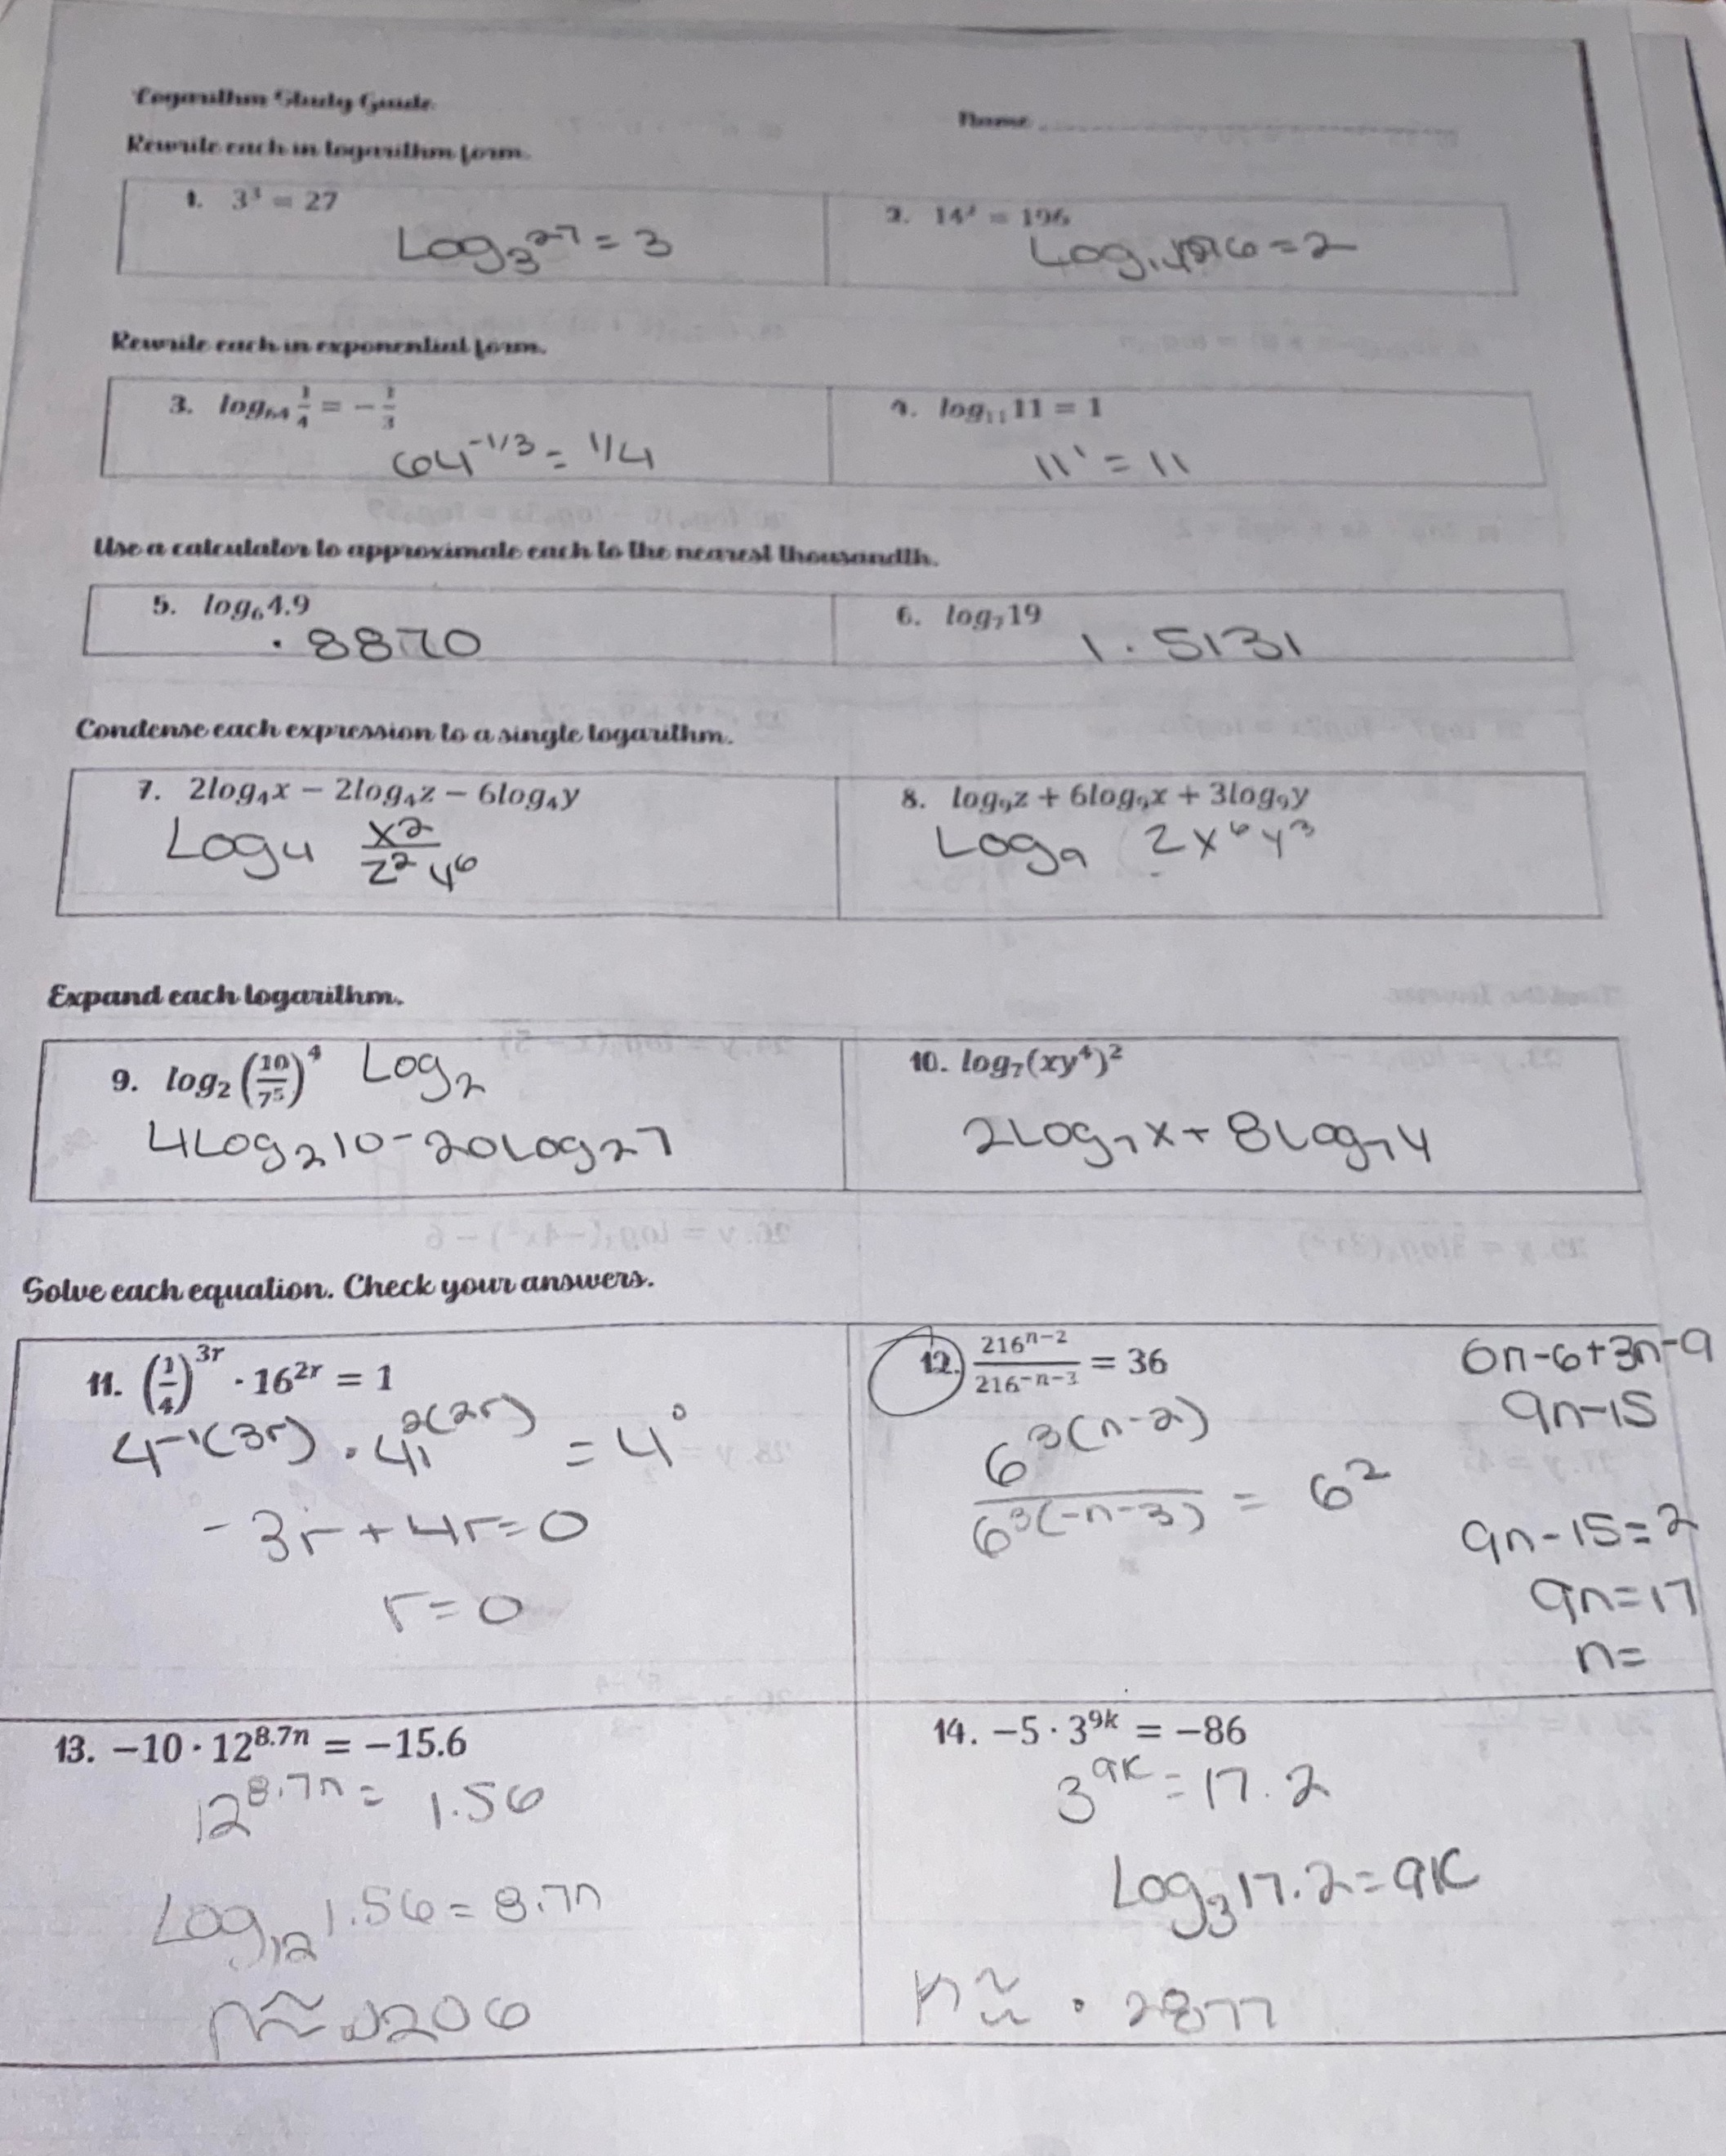 Logarithm Study Guide
Name
Rewrite each in logarithm form.
1. 3³ = 27
Log₃27 = 3
2. 14² = 196
Log₁₄196 = 2
Rewrite each in exponential form.
3. log₆₄ 1/4 = −1/3
64^-1/3 = 1/4
4. log₁₁11 = 1
11¹ = 11
Use a calculator to approximate each to the nearest thousandth.
5. log₆4.9
.8870
6. log₇19
1.5131
Condense each expression to a single logarithm.
7. 2log₄x − 2log₄z − 6log₄y
Log₄ x²/z²y⁶
8. log₉z + 6log₉x + 3log₉y
Log₉ zx⁶y³
Expand each logarithm.
9. log₂(10/7⁵)⁴ Log₂
4Log₂10 - 20Log₂7
10. log₇(xy⁴)²
2Log₇x + 8Log₇y
Solve each equation. Check your answers.
11. (1/4)^3r · 16^2r = 1
4^-1(3r) · 4^2(2r) = 4⁰
-3r + 4r = 0
r = 0
12. 216^n−2/216^−n−3 = 36
6^3(n-2)/6^3(-n-3) = 6²
6n-6+3n-9
9n-15
9n-15=2
9n=17
n=
13. −10 · 12^8.7n = −15.6
12^8.7n = 1.56
Log₁₂1.56 = 8.7n
n ≈ .0206
14. −5 · 3^9k = −86
3^9k = 17.2
Log₃17.2 = 9k
k ≈ .2877